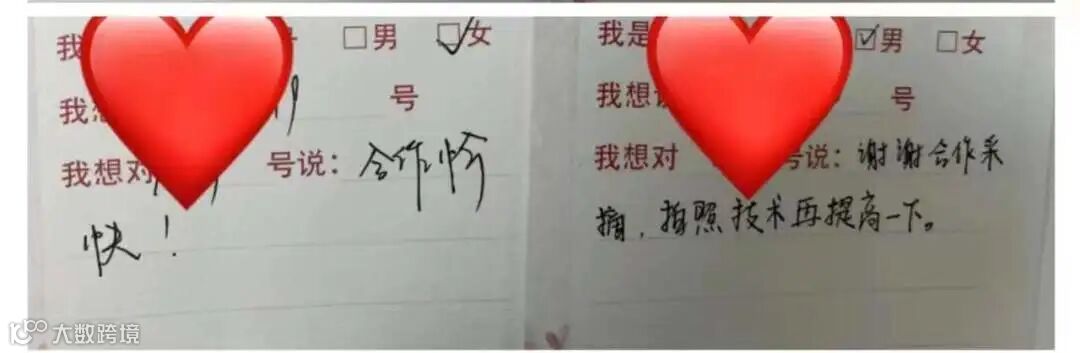 我 □男 ☑女
我想 号
我想对 号说：合作愉
快！
我是 ☑男 □女
我想 号
我想对 号说：谢谢合作采
摘，拍照技术再提高一下。
大数跨境